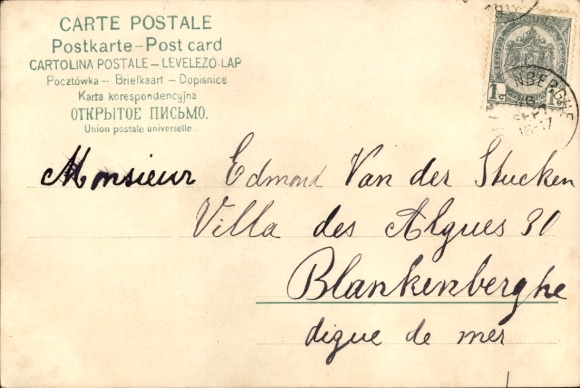 CARTE POSTALE
Postkarte – Post card
CARTOLINA POSTALE – LEVELEZO-LAP
Pocztówka – Briefkaart – Dopisnice
Karta korespondencyjna
ОТКРЫТОЕ ПИСЬМО.
Union postale universelle.
1c
NBERGHE
SEPT
16-17
Monsieur Edmond Van der Stucken
Villa des Algues 30
Blankenberghe
digue de mer